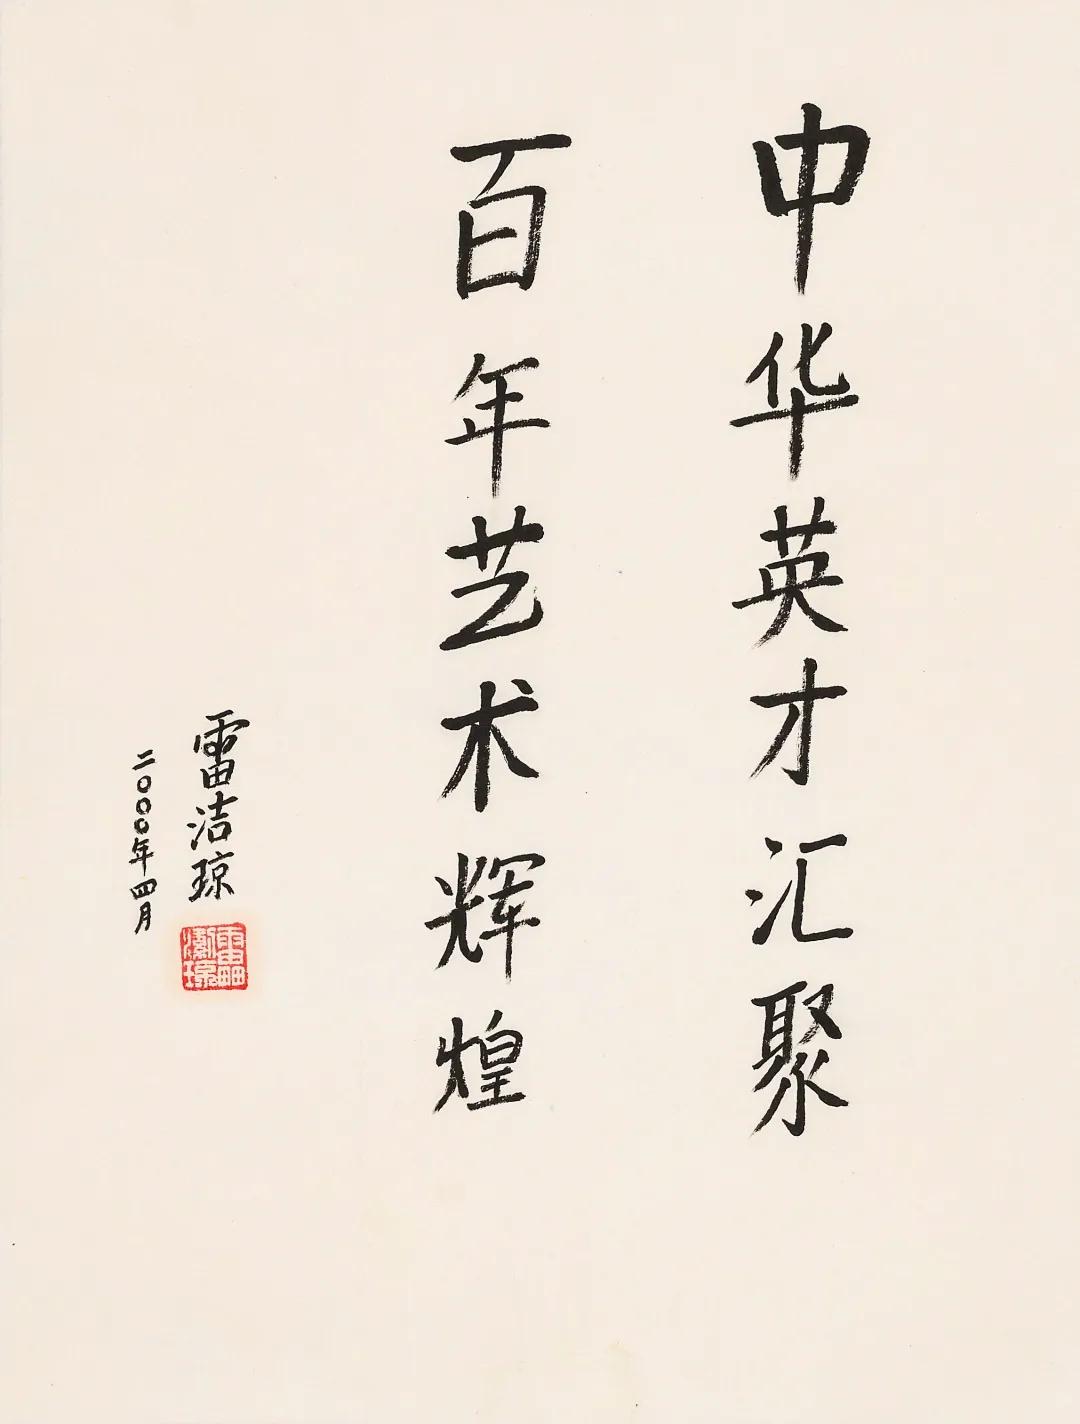 中华英才汇聚
百年艺术辉煌
雷洁琼
二〇〇〇年四月
雷洁琼